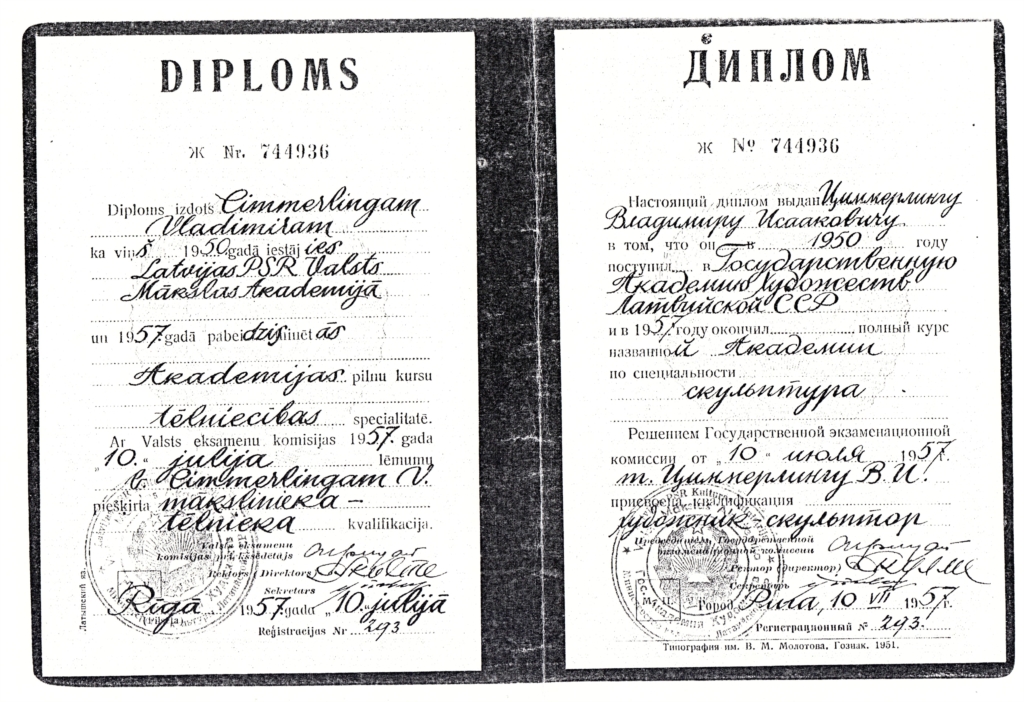 DIPLOMS
Ж Nr. 744936
Diploms izdots Cimmerlingam
Vladimiram
ka viņš 1950 gadā iestājies
Latvijas PSR Valsts
Mākslas Akademijā
un 1957 gadā pabeidzis minētās
Akademijas pilnu kursu
tēlniecības specialitatē.
Ar Valsts eksamenu komisijas 1957. gada
„10.“ julija lēmumu
b. Cimmerlingam V.
piešķirta mākslinieka –
tēlnieka kvalifikacija.
Valsts eksamenu
komisijas priekšsēdētājs
Rektors (Direktors)
Sekretars
Rīgā 1957. gada „10.“ julijā
Reģistracijas Nr. 293
Латышский яз.
ДИПЛОМ
Ж № 744936
Настоящий диплом выдан Циммерлингу
Владимиру Исааковичу
в том, что он в 1950 году
поступил в Государственную
Академию Художеств
Латвийской ССР
и в 1957 году окончил полный курс
названной Академии
по специальности
скульптура
Решением Государственной экзаменационной
комиссии от „10“ июля 1957 г.
т. Циммерлингу В. И.
присвоена квалификация
художник - скульптор
Председатель Государственной
экзаменационной комиссии
Ректор (директор)
Секретарь
Город Рига, 10 VII 1957 г.
Регистрационный № 293.
Типография им. В. М. Молотова. Гознак. 1951.